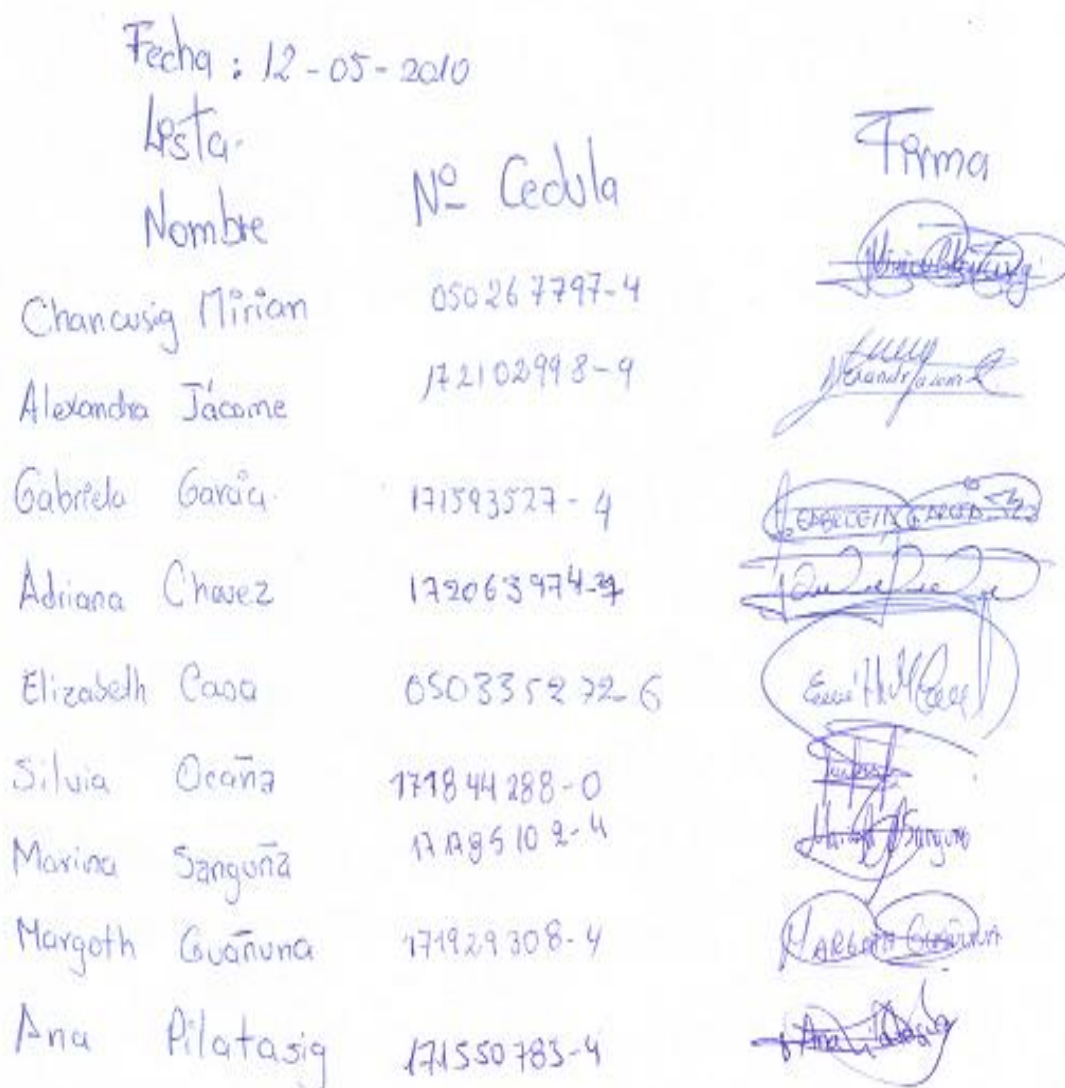 Fecha : 12-05-2010
Lista.
Nombre Nº Cedula Firma
Chancusig Mirian 050267797-4
Alexandra Jácome 172102998-9
Gabriela García. 171593527-4 GABRIELA GARCIA
Adriana Chavez
Elizabeth Casa 050335272-6
Silvia Ocaña 171844288-0
Marina Sanguña
Margoth Guañuna 171929308-4 MARGOTH GUAÑUNA
Ana Pilatasig 171550783-4 Ana Pilatasig